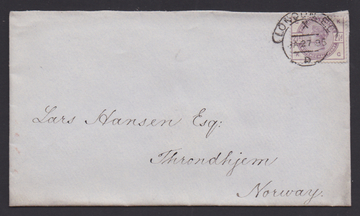 LONDON
Lars Hansen Esq:
Throndhjem
Norway.